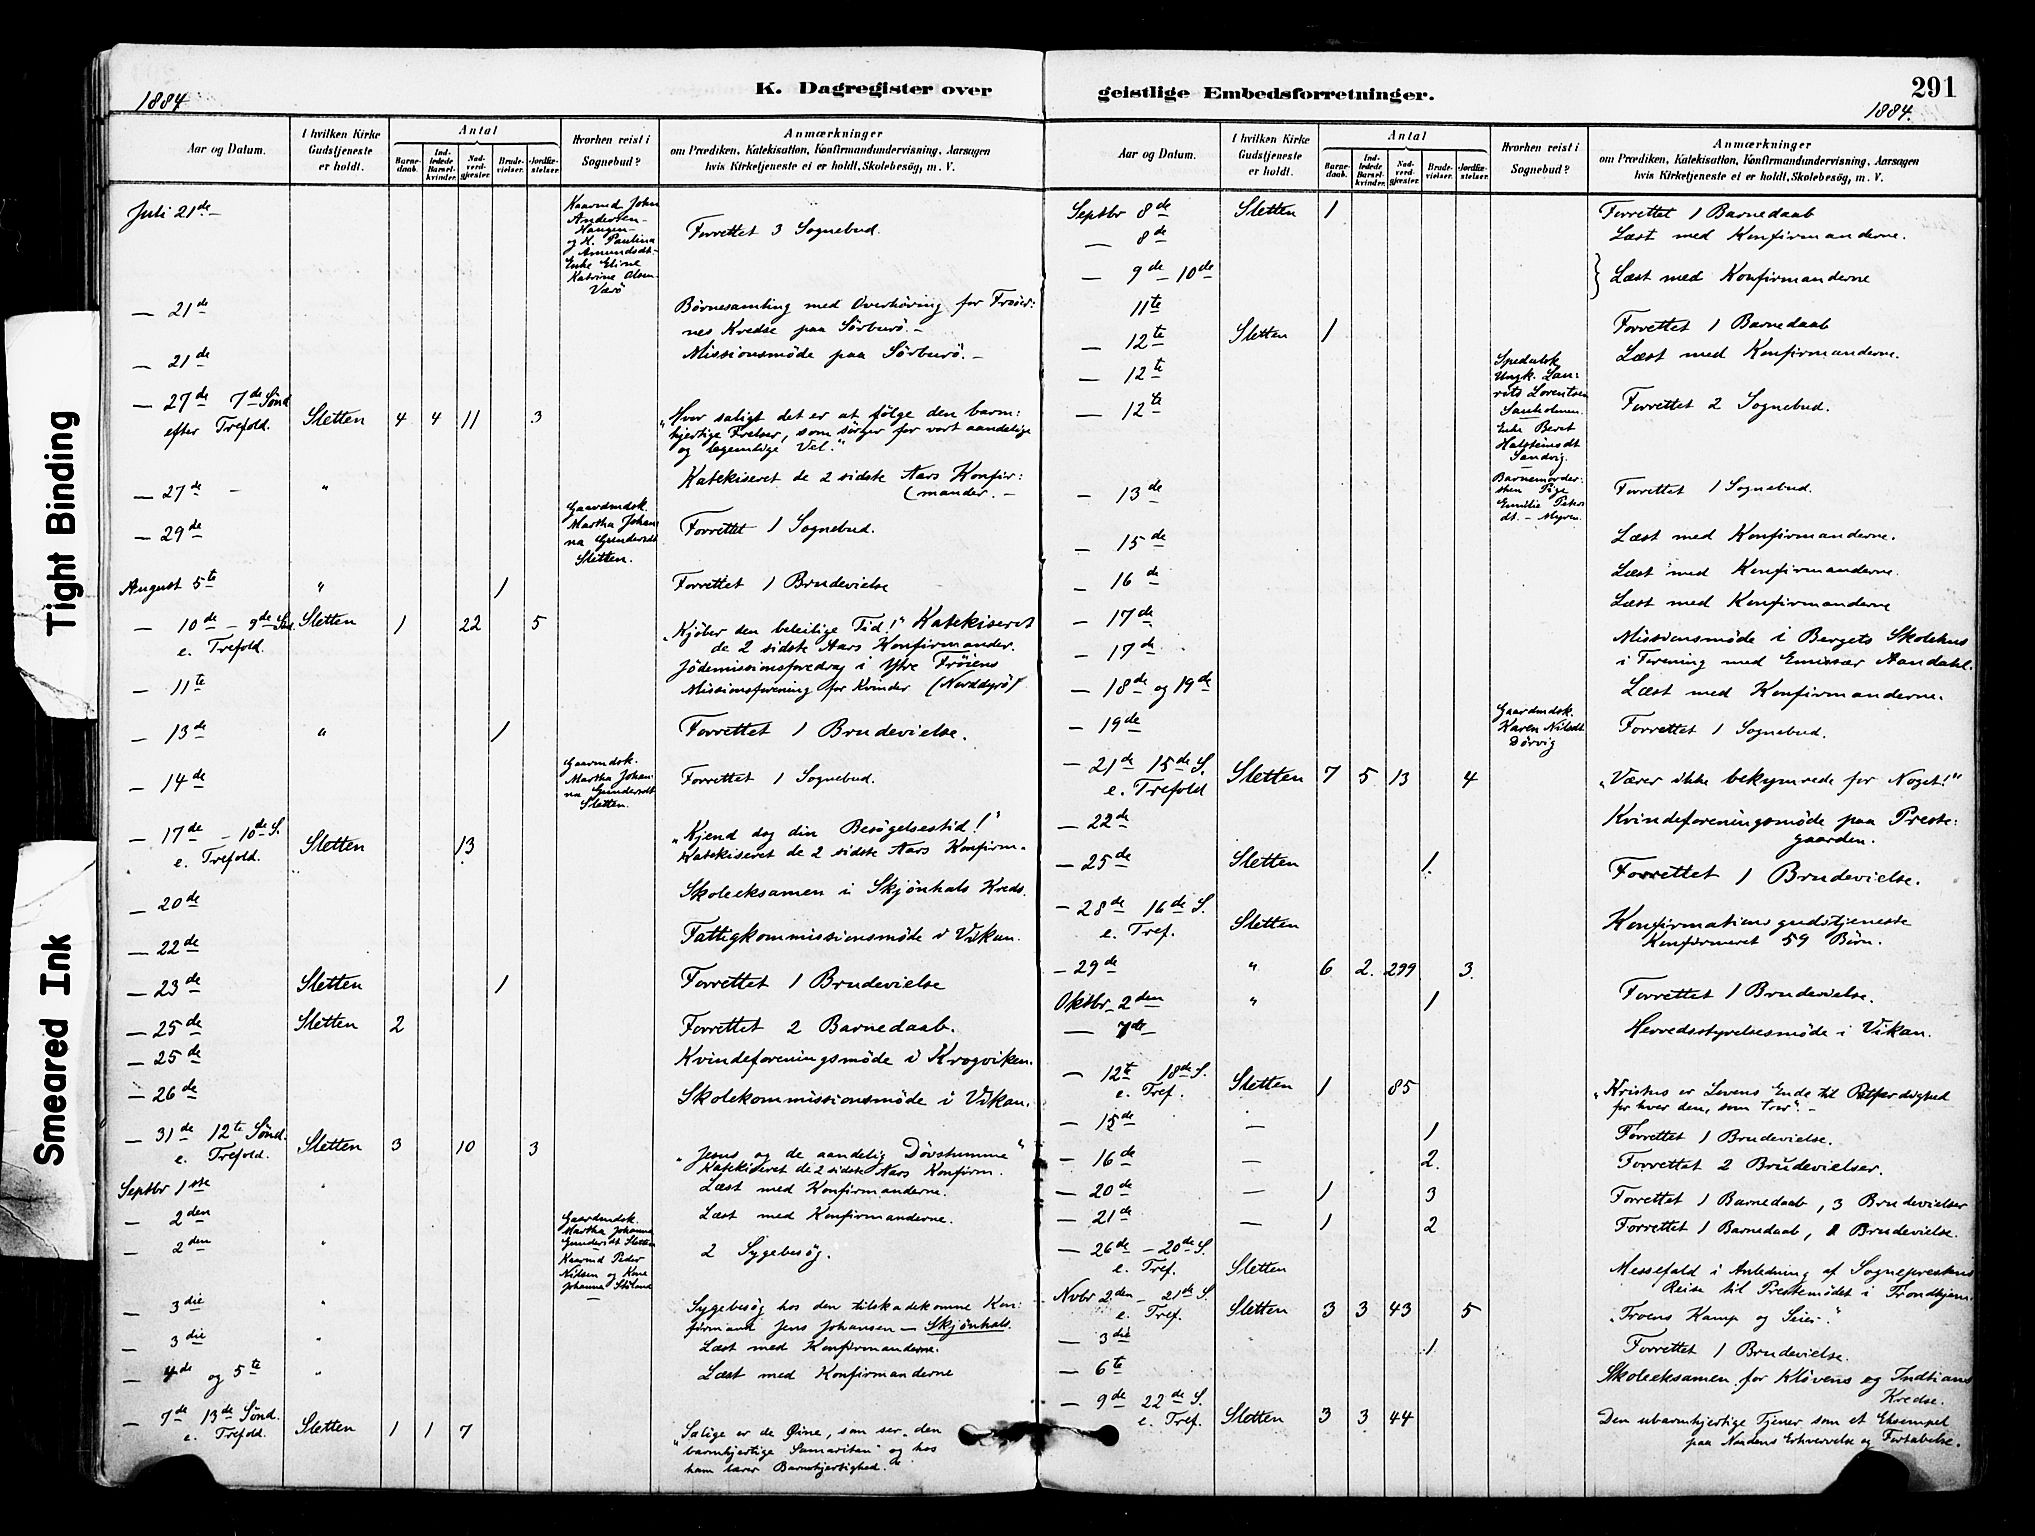 Tight Binding
Smeared Ink
1884
K. Dagregister over
Aar og Datum.
I hvilken Kirke Gudstjeneste er holdt.
Antal
Barnedaab.
Indledede Barselkvinder.
Nadverdgjæster.
Brudevielser.
Jordfæstelser.
Hvorhen reist i Sognebud?
Anmærkninger
om Prædiken, Katekisation, Konfirmandundervisning, Aarsagen
hvis Kirketjeneste ei er holdt, Skolebesøg, m. V.
Juli 21de – Kaarmd John Andersen Haugen – og H. Paulina Amundsdt – Enke Eline Katrine Olsen Værö Forrettet 3 Sognebud.
— 21de Børnesamling med Overhøring for Frøier:
nes Kredse paa Sørburö. –
— 21de Missionsmöde paa Sørburö. –
— 27de 7de Sönd
efter Trefold. Sletten 4 4 11 3 „Hvor saligt det er at følge den barm:
hjertige Frelser, som sörger for vort aandelige
og legemlige Vel."
— 27de – " Katekiseret de 2 sidste Aars Konfir:
(mander. –
— 29de Gaardmdsk. Martha Johanna Gundersdt Sletten. Forrettet 1 Sognebud.
August 5te " 1 Forrettet 1 Brudevielse
— 10de – 9de Sönd.
e. Trefold. Sletten 1 22 5 „Kjøber den beleilige Tid!" Katekiseret
de 2 sidste Aars Konfirmander.
— 11te Jødemissionsforedrag i Ytre Frøiens
Missionsforening for Kvinder (Norddyrö)
— 13de " 1 Forrettet 1 Brudevielse.
— 14de Gaarmdsk. Martha Johanna Gundersdt Sletten. Forrettet 1 Sognebud.
— 17de – 10de S.
e. Trefold. Sletten 13 „Kjend dog din Besøgelsestid!"
Katekiseret de 2 sidste Aars Konfirm.
— 20de Skoleeksamen i Skjönhals Kreds.
— 22de Fattigkommissionsmöde i Vikan.
— 23de Sletten 1 Forrettet 1 Brudevielse
— 25de Sletten 2 Forrettet 2 Barnedaab.
— 25de Kvindeforeningsmöde i Krogviken.
— 26de Skolekommissionsmöde i Vikan.
— 31de 12te Sönd.
e. Trefold. Sletten 3 10 3 „Jesus og de aandelig Døvstumme"
Katekiseret de 2 sidste Aars Konfirm.
Septbr 1ste " Læst med Konfirmanderne.
— 2den Læst med Konfirmanderne.
— 2den " Gaardmdsk. Martha Johanna Gundersdt Sletten Kaarmd Peder Nilsen og Kone Johanna 2 Sygebesøg.
— 3die " Sygebesøg hos den tilskadekomne Kon:
firmand Jens Johansen – Skjönhals.
— 3die " Læst med Konfirmanderne.
— 4de og 5te " Læst med Konfirmanderne
— 7de 13de Sönd.
e. Trefold. Sletten 1 1 7 „Salige er de Öine, som ser den
barmhjertige Samaritan" og hos
ham lærer Barmhjertighed.
geistlige Embedsforretninger.
291
1884.
Aar og Datum.
I hvilken Kirke Gudstjeneste er holdt.
Antal
Barnedaab.
Indledede Barselkvinder.
Nadverdgjæster.
Brudevielser.
Jordfæstelser.
Hvorhen reist i Sognebud?
Anmærkninger
om Prædiken, Katekisation, Konfirmandundervisning, Aarsagen
hvis Kirketjeneste ei er holdt, Skolebesøg, m. V.
Septbr 8de Sletten 1 Forrettet 1 Barnedaab
— 8de Læst med Konfirmanderne.
— 9de – 10de Læst med Konfirmanderne
11te
— 12te Sletten 1 Forrettet 1 Barnedaab
— 12te Læst med Konfirmanderne.
— 12te Spedalsk Ungk. Laurits Lorentsen Enke Beret Halsteinsdt Sandvig. Forrettet 2 Sognebud.
— 13de Barnemordersken Pige Emilie Petersdt. – Myren. Forrettet 1 Sognebud.
— 15de Læst med Konfirmanderne.
— 16de Læst med Konfirmanderne.
— 17de Læst med Konfirmanderne
— 17de Missionsmöde i Bergets Skolehus
i Forening med Emissær Aandahl.
— 18de og 19de Læst med Konfirmanderne.
— 19de Gaardmdsk. Karen Nilsdt Dørvig Forrettet 1 Sognebud.
— 21de 15de S.
e. Trefold Sletten 7 5 13 4 „Værer ikke bekymrede for Noget!"
— 22de Kvindeforeningsmöde paa Preste:
gaarden.
— 25de Sletten 1. Forrettet 1 Brudevielse.
— 28de 16de S.
e. Tref. Sletten Konfirmationsgudstjeneste
Konfirmeret 59 Börn.
— 29de " 6 2. 299 3.
Oktbr 2den " 1 Forrettet 1 Brudevielse.
— 7de Herredsstyrelsesmöde i Vikan.
— 12te 18de S.
e. Tref. Sletten 1 85 „Kristus er Lovens Ende til Retfærdighed
for hver den, som tror". –
— 15de — 1 Forrettet 1 Brudevielse.
— 16de — 2. Forrettet 2 Brudevielser.
— 20de — 1 3 Forrettet 1 Barnedaab, 3 Brudevielser
— 21de — 1 2 Forrettet 1 Barnedaab, Brudevielse.
— 26de – 20de S.
e. Tref. Sletten Messefald i Anledning af Sogneprestens
Reise til Prestemödet i Trondhjem.
Nvbr 2den – 21de S.
e. Tref. Sletten 3 3 43 5 „Troens Kamp og Seier."
— 3die " 1 Forrettet 1 Brudevielse.
— 6te Skoleeksamen for Kløvens og
Kredse.
— 9de 22de S.
e. Tref. Sletten 3 3 44 Den ubarmhjertige Tjener som et Eksempel
paa Naadens Erhvervelse og Fortabelse.